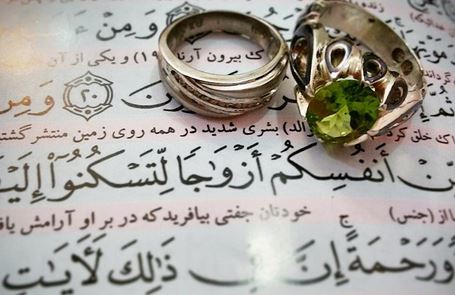 وَمِنْ
ک بیرون آرد (۱۹) و یکی از آن
۲۰ وَمِنْ
بشری شدید در همه روی زمین منتشر گشتـ
أَنفُسِكُمْ أَزْوَٰجًا لِّتَسْكُنُوٓا۟ إِلَيْـ
از (جنس) خودتان جفتی بیافرید که در بر او آرامش یافـ
وَرَحْمَةً إِنَّ فِى ذَٰلِكَ لَـَٔايَـٰتٍ